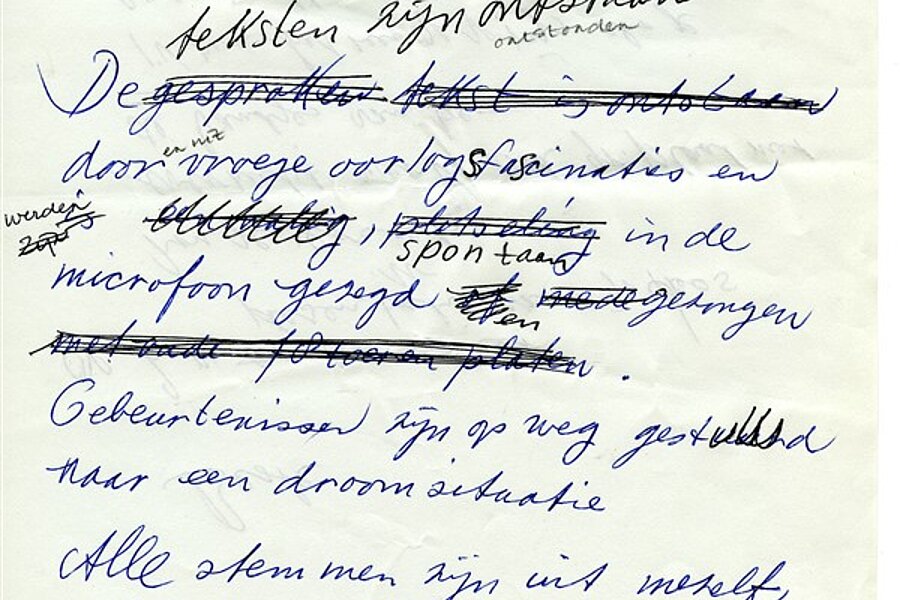 teksten zijn ontstaan
ontstonden
De gesproken tekst is ontstaan
en uit
door vroege oorlogsfascinaties en
werden
is , plotseling in de
spontaan
microfoon gezegd of medegezongen
en
met oude 78 toeren platen .
Gebeurtenissen zijn op weg gestuurd
naar een droomsituatie
Alle stemmen zijn uit mezelf,